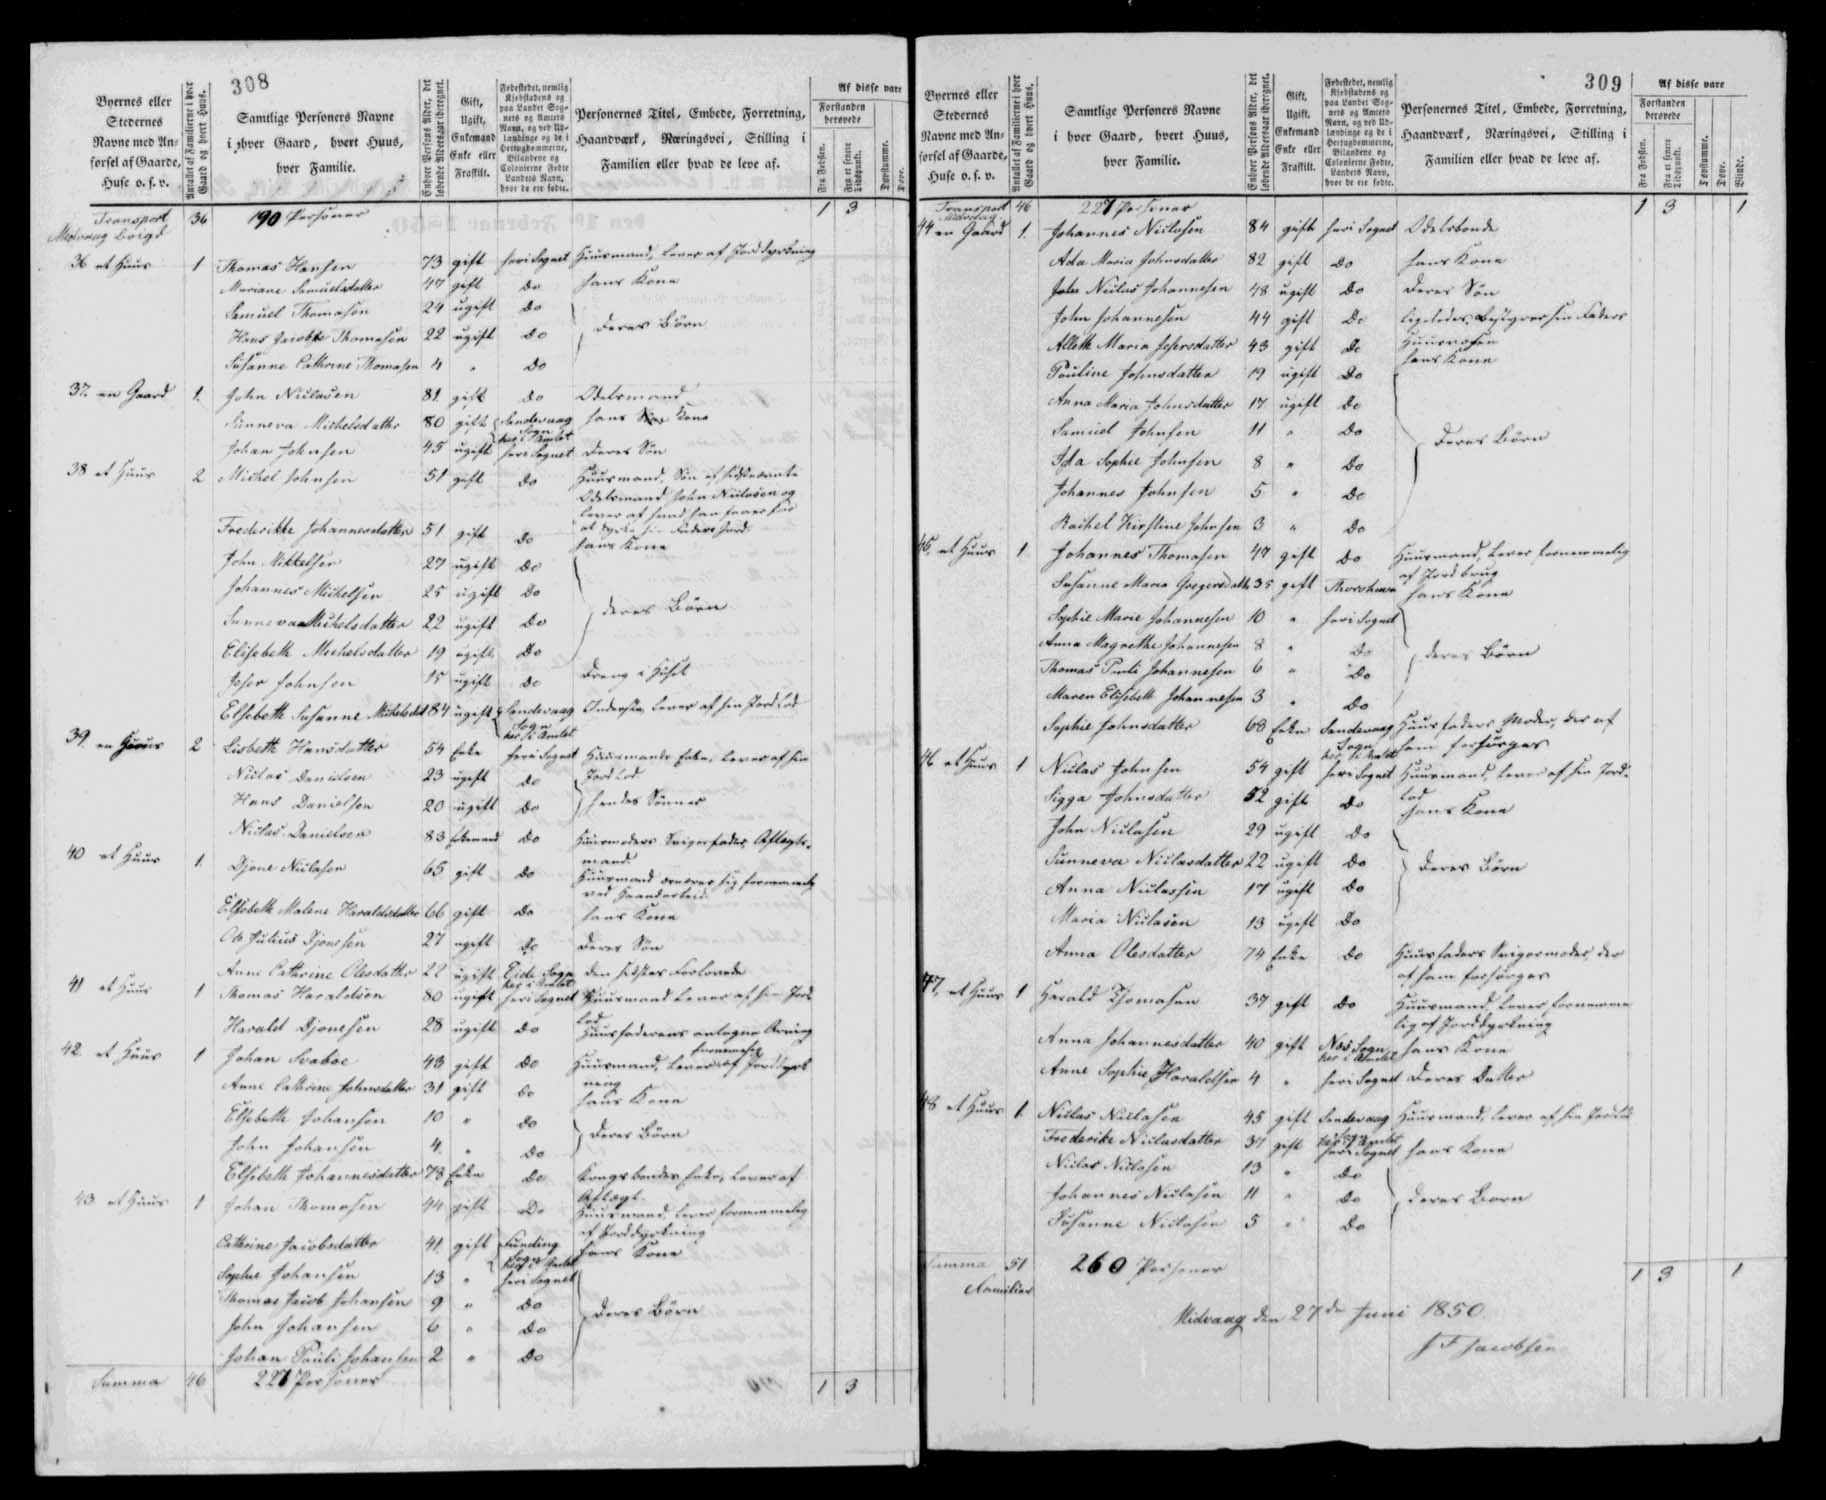 308
Byernes eller Stedernes Navne med Anførsel af Gaarde, Huse o. s. v.
Antallet af Familierne i hver Gaard og hvert Huus.
Samtlige Personers Navne i hver Gaard, hvert Huus, hver Familie.
Enhver Persons Alder, det løbende Aldersaar iberegnet.
Gift, Ugift, Enkemand Enke eller Fraskilt.
Fødestedet, nemlig Kjøbstadens og paa Landet Sognets og Amtets Navn, og ved Udlændinge og de i Hertugdømmerne, Bilandene og Colonierne Fødte Landets Navn, hvor de ere fødte.
Personernes Titel, Embede, Forretning, Haandværk, Næringsvei, Stilling i Familien eller hvad de leve af.
Af disse vare
Forstanden berøvede
Fra Fødsten.
Fra et senere Tidspunkt.
Døvstumme.
Døve.
Transport 36 190 Personer 1 3
Midvaag boigd
36 et Huus 1 Thomas Hansen 73 gift her i Sognet Huusmand, lever af Jorddyrkning
Mariane Samuelsdatter 47 gift do hans Kone
Samuel Thomasen 24 ugift do
Hans Jacob Thomasen 22 ugift do deres Børn
Susanne Cathrine Thomasen 4 " do
37. en Gaard 1. John Niclasen 81 gift do Odelsmand
Sunneva Michelsdatter 80 gift Sandevaag Sogn her i Amtet hans Kone
Johan Johnsen 45 ugift her i Sognet deres Søn
38 et Huus 2 Michel Johnsen 51 gift do Huusmand, Søn af sidstnævnte
Odelsmand John Niclasen og
lever af hvad han faaer for
at dyrke sin Faders Jord.
Frederikke Johannesdatter 51 gift do hans Kone
John Mikkelsen 27 ugift do
Johannes Michelsen 25 ugift do
Sunneva Michelsdatter 22 ugift do deres Børn
Elisebeth Michelsdatter 19 ugift do
Jesper Johnsen 15 ugift do Dreng i Huset
Elsebeth Susanne Michelsdat 84 ugift Sandevaag Sogn her i Amtet Inderste, lever af sin Jordlod
39. en Huus 2 Lisbeth Hansdatter 54 Enke her i Sognet Huusmands Enke, lever af sin
Jordlod
Niclas Danielsen 23 ugift do
Hans Danielsen 20 ugift do hendes Sønner
Niclas Danielsen 83 Enkemand do Huusmoders Svigerfader, Aftægts-
mand
40 et Huus 1. Djone Niclasen 65 gift do Huusmand ernærer sig fornemmelig
ved Haandarbeid
Elsebeth Malene Haraldsdatter 66 gift do hans Kone
Ole Julius Djonesen 27 ugift do deres Søn
Anne Cathrine Olesdatter 22 ugift Eide Sogn her i Amtet den sidstes Forlovede
41 et Huus 1 Thomas Haraldsen 80 ugift her i Sognet Huusmand lever af sin Jord-
lod
Harald Djonesen 28 ugift do Huusfaderens antagne Arving
42. et Huus 1 Johan Svaboe 43 gift do Huusmand, lever fornemelig af Jorddyrk
ning
Anne Cathrine Johnsdatter 31 gift do hans Kone
Elsebeth Johansen 10 " do
John Johansen 4. " do deres Børn
Elsebeth Johannesdatter 73 Enke do Kongsbondes Enke, lever af
Aftægt.
43 et Huus 1 Johan Thomasen 44 gift do Huusmand, lever fornemmelig
af Jorddyrkning
Cathrine Jacobsdatter 41. gift Funding Sogn her i Amtet hans Kone
Sophie Johansen 13 " her i Sognet
Thomas Jacob Johansen 9 " do
John Johansen 6 " do deres Børn
Johan Pauli Johansen 2 " do
Summa 46 227 Personer 1 3
309
Byernes eller Stedernes Navne med Anførsel af Gaarde, Huse o. s. v.
Antallet af Familierne i hver Gaard og hvert Huus.
Samtlige Personers Navne i hver Gaard, hvert Huus, hver Familie.
Enhver Persons Alder, det løbende Aldersaar iberegnet.
Gift, Ugift, Enkemand Enke eller Fraskilt.
Fødestedet, nemlig Kjøbstadens og paa Landet Sognets og Amtets Navn, og ved Udlændinge og de i Hertugdømmerne, Bilandene og Colonierne Fødte, Landets Navn, hvor de ere fødte.
Personernes Titel, Embede, Forretning, Haandværk, Næringsvei, Stilling i Familien eller hvad de leve af.
Af disse vare
Forstanden berøvede
Fra Fødsten.
Fra et senere Tidspunkt.
Døvstumme.
Døve.
Blinde.
Transport 46 227 Personer 1 3 1
Midvaag
44 en Gaard 1. Johannes Niclasen 84 gift her i Sognet Odelsbonde
Ada Maria Johnsdatter 82 gift do hans Kone
John Niclas Johannesen 48 ugift do deres Søn
John Johannesen 44 gift do ligeledes, bestyrer sin Faders
Huusvæsen
Alleth Maria Jespersdatter 43 gift do hans Kone
Pouline Johnsdatter 19 ugift do
Anna Maria Johnsdatter 17 ugift do
Samuel Johnsen 11 " do
Ida Sophie Johnsen 8 " do deres Børn
Johannes Johnsen 5 " do
Rachel Kirstine Johnsen 3 " do
45. et Huus 1 Johannes Thomasen 47 gift do Huusmand, lever fornemmelig
af Jordbrug
Susanne Maria Gregersdatt 35 gift Thorshavn hans Kone
Sophie Marie Johannesen 10 " her i Sognet
Anna Magrethe Johannesen 8 " do
Thomas Pauli Johannesen 6 " do deres Børn
Maren Elisebeth Johannesen 3 " do
Sophie Johnsdatter 68 Enke Sandevaag Sogn her i Amtet Huusfaders Moder, der af
ham forsørges
46 et Huus 1 Niclas Johnsen 54 gift her i Sognet Huusmand, lever af sin Jord-
lod
Sigga Johnsdatter 52 gift do hans Kone
John Niclasen 29 ugift do
Sunneva Niclasdatter 22 ugift do deres Børn
Anna Niclassen 17 ugift do
Maria Niclasen 13 ugift do
Anna Olesdatter 74 Enke do Huusfaders Svigermoder, der
af ham forsørges
47. et Huus 1 Harald Thomasen 37 gift do Huusmand, lever fornemme
lig af Jorddyrkning
Anna Johannesdatter 40 gift Næs Sogn her i Amtet hans Kone
Anne Sophie Haraldsen 4 " her i Sognet deres Datter
48 et Huus 1. Niclas Niclasen 45 gift Sandevaag Sogn her i Amtet Huusmand, lever af sin Jordlod
Frederike Niclasdatter 37 gift her i Sognet hans Kone
Niclas Niclasen 13 " do
Johannes Niclasen 11 " do deres Børn
Susanne Niclasen 5 " do
Summa 51 260 Personer 1 3 1
Familier
Midvaag den 27de Juni 1850.
J F Jacobsen